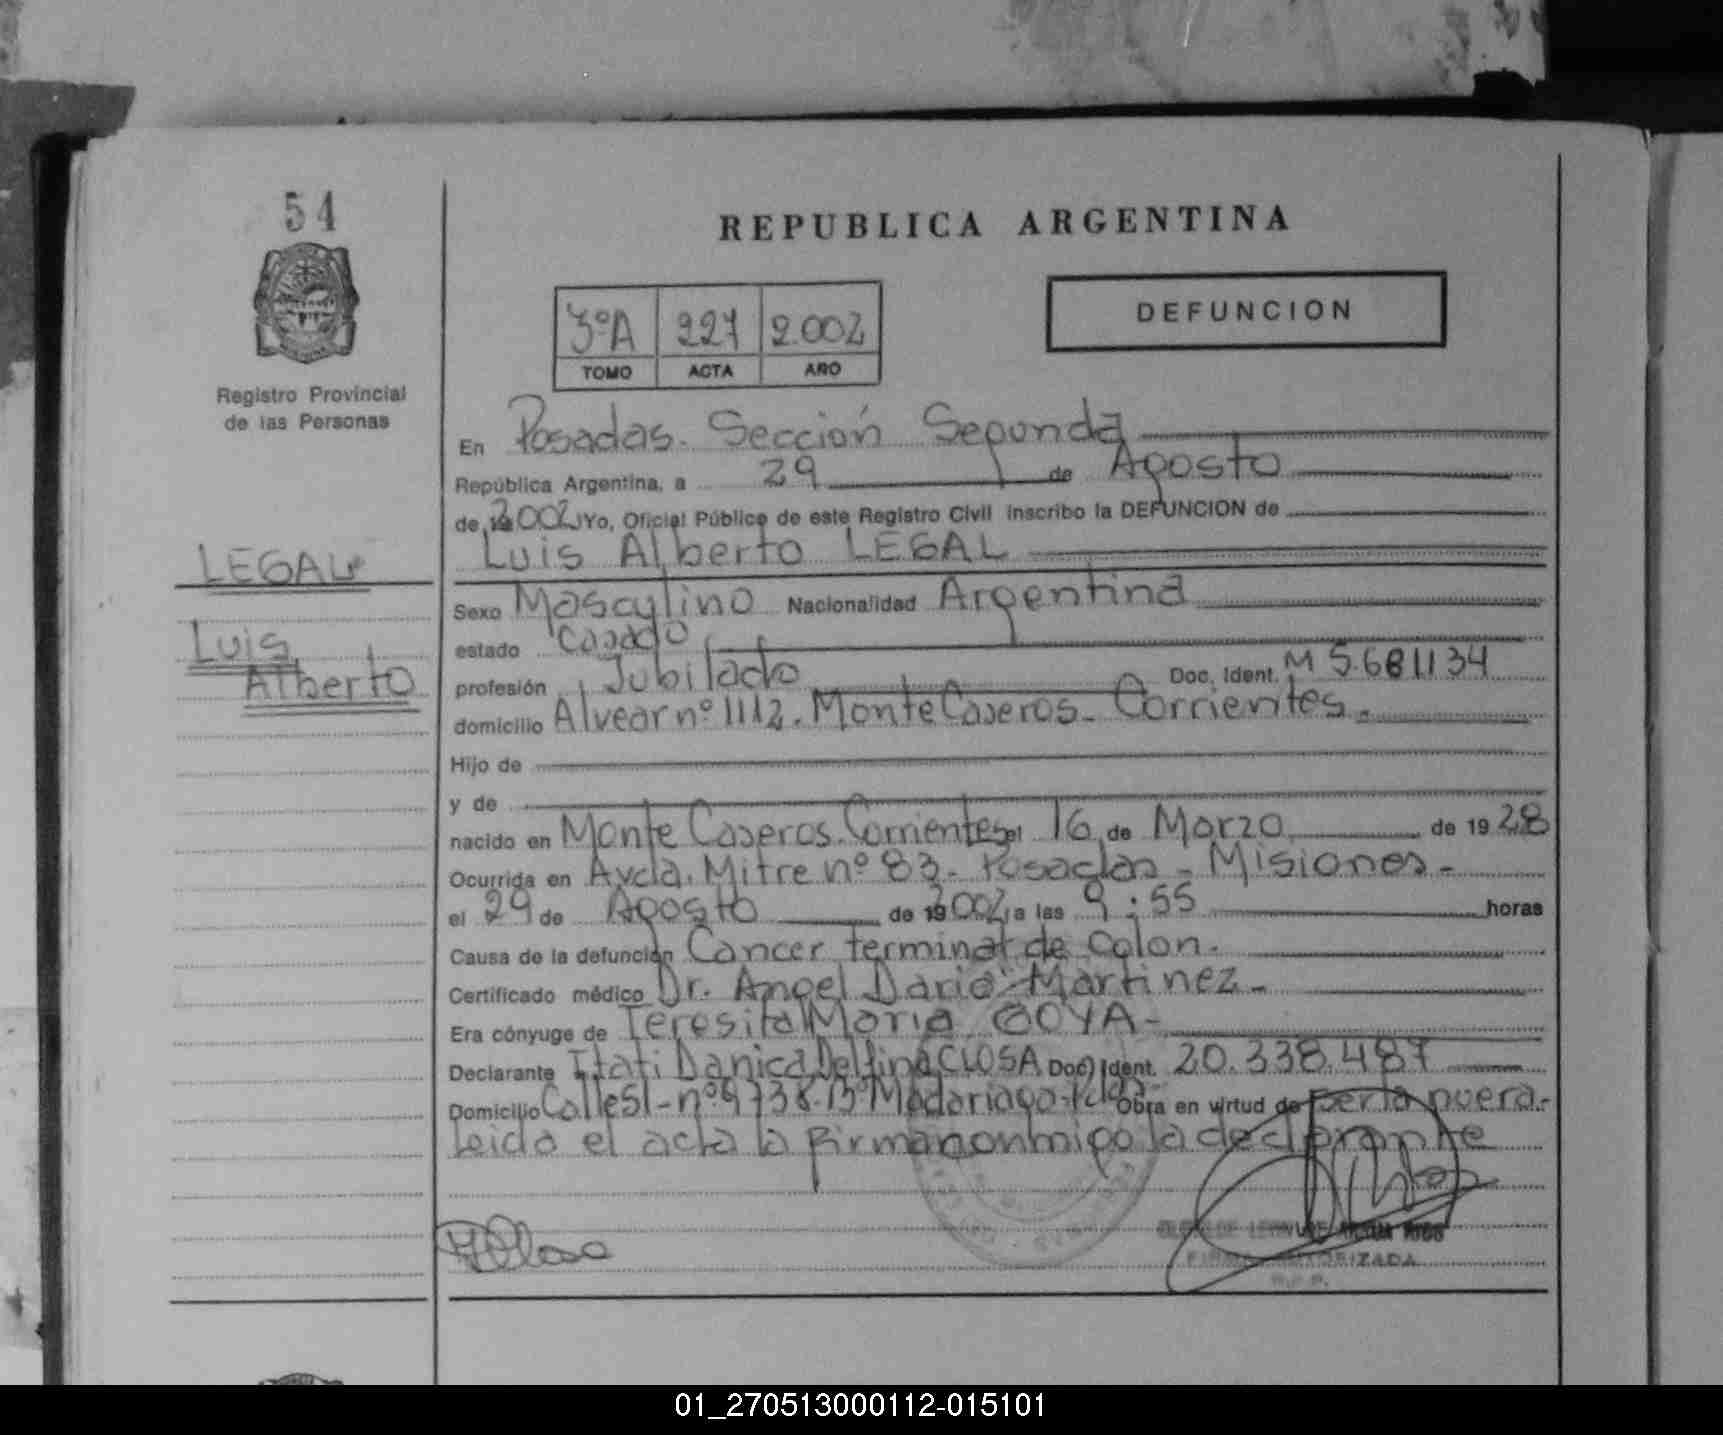 54
REPUBLICA ARGENTINA
3ºA 227 2.002
TOMO ACTA AÑO
DEFUNCION
Registro Provincial
de las Personas
En Posadas. Sección Segunda
República Argentina, a 29 de Agosto
de 2002 Yo, Oficial Público de este Registro Civil inscribo la DEFUNCION de
LEGAL
Luis Alberto LEGAL
Luis
Alberto
Sexo Masculino Nacionalidad Argentina
estado Casado
profesión Jubilado Doc. Ident. M 5.681134
domicilio Alvear nº 1112. Monte Caseros. Corrientes.
Hijo de
y de
nacido en Monte Caseros. Corrientes el 16 de Marzo de 1928
Ocurrida en Avda. Mitre nº 83. Posadas - Misiones -
el 29 de Agosto de 2002 a las 9:55 horas
Causa de la defunción Cancer terminal de Colon.
Certificado médico Dr. Angel Dario Martinez -
Era cónyuge de Teresita Maria GOYA -
Declarante Itati Danica Delfina CLOSA Doc. Ident. 20.338.487
Domicilio Calle 51 - nº 9738. Bº Madariaga - Pdas - Obra en virtud de
leida el acta la firma conmigo la declarante
FIRMA AUTORIZADA
R.P.P.
01_270513000112-015101